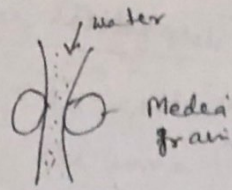 water
Media
grain